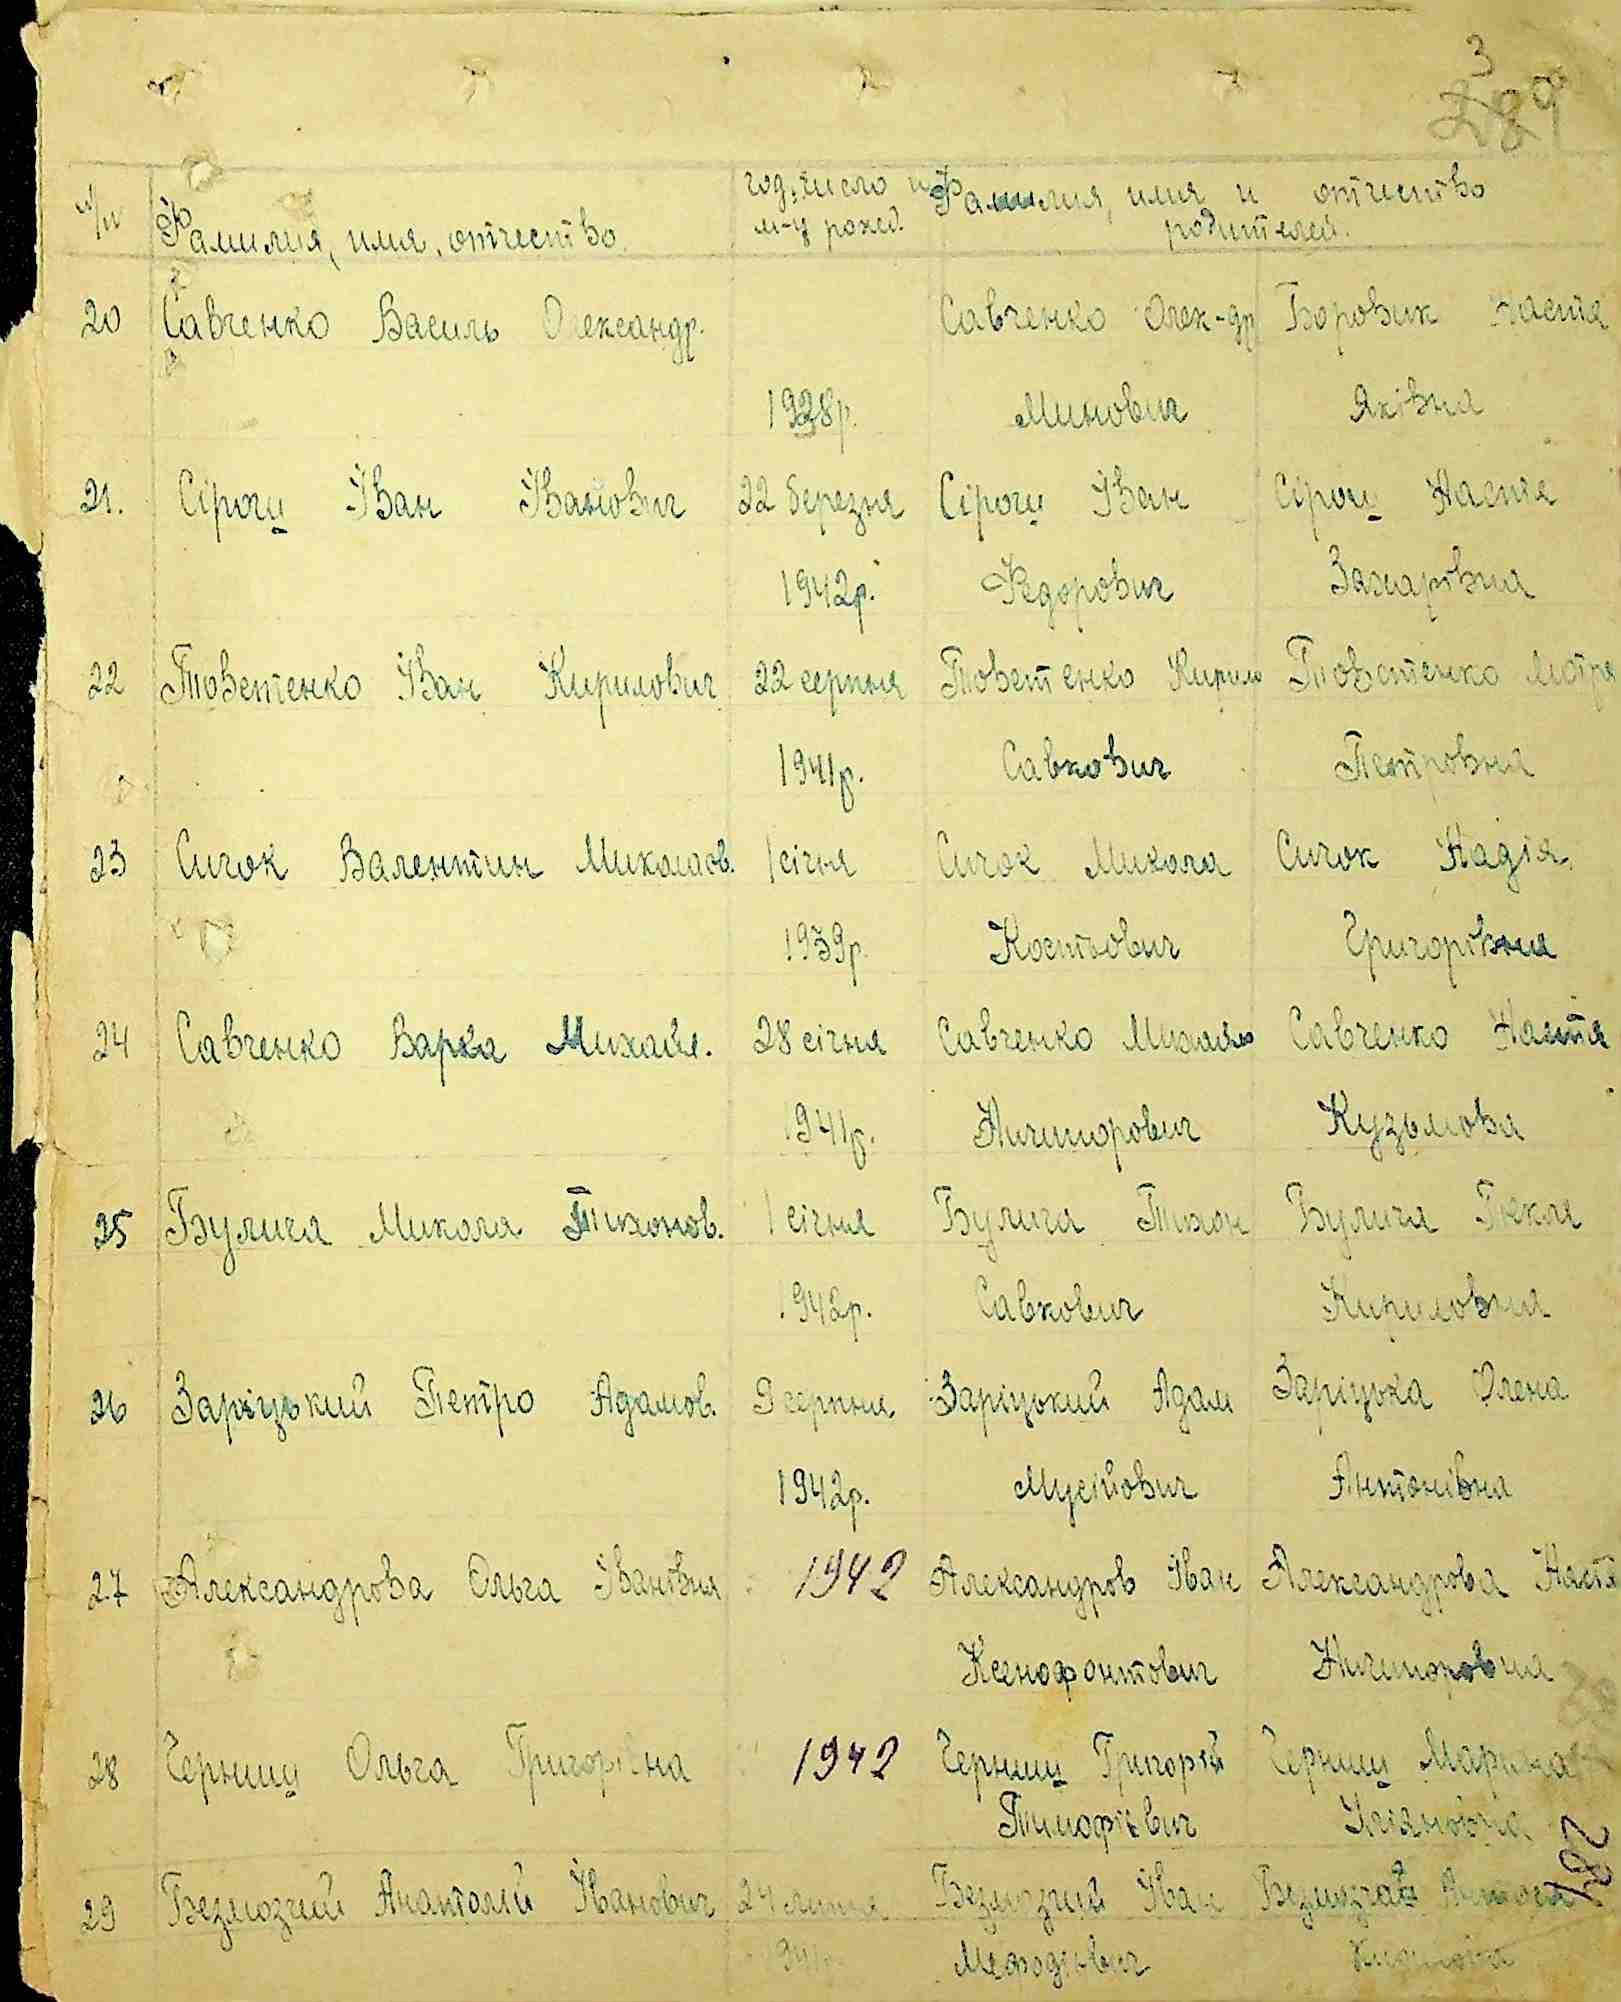 3
289
п/п Фамилия, имя, отчество год, число и м-ц рожд. Фамилия, имя и отчество родителей.
20 Савченко Василь Олександр. Савченко Олек-др Боровик Настя
1938р. Минович Яківна
21. Сірощ Іван Іванович 22 березня Сірощ Іван Сірощ Настя
1942р. Федорович Захарівна
22 Товстенко Іван Кирилович 22 серпня Товстенко Кирило Товстенко Мотря
1941р. Савкович Петровна
23 Сичок Валентин Миколаєв. 1 січня Сичок Микола Сичок Надія
1939р. Костьович Григорівна
24 Савченко Варка Михайл. 28 січня Савченко Михайло Савченко Настя
1941р. Ничипорович Кузьмова
25 Булига Микола Тихонов. 1 січня Булига Тихон Булига Текля
1942р. Савкович Кириловна
26 Заріцький Петро Адамов. 9 серпня Заріцький Адам Заріцька Олена
1942р. Мусійович Антонівна
27 Александрова Ольга Іванівна 1942 Александров Іван Александрова Настя
Ксенофонтович Ничипоровна
28 Черниш Ольга Григорівна 1942 Черниш Григорій Черниш Марина
Тимофієвич Уляновна
29 Безмозгий Анантолій Іванович 24 липня Безмозгий Іван Безмозгая
1941р. Мефодієвич